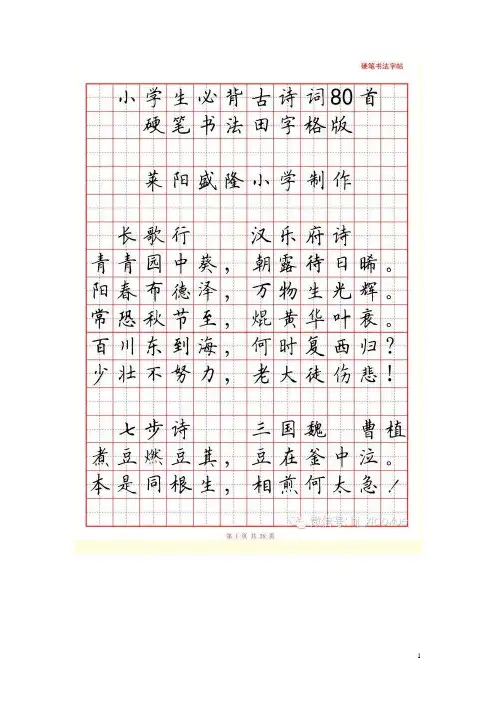 硬笔书法字帖
小学生必背古诗词80首
硬笔书法田字格版
莱阳盛隆小学制作
长歌行 汉乐府诗
青青园中葵，朝露待日晞。
阳春布德泽，万物生光辉。
常恐秋节至，焜黄华叶衰。
百川东到海，何时复西归？
少壮不努力，老大徒伤悲！
七步诗 三国魏 曹植
煮豆燃豆萁，豆在釜中泣。
本是同根生，相煎何太急！
微信号:
第 1 页 共 28 页
1